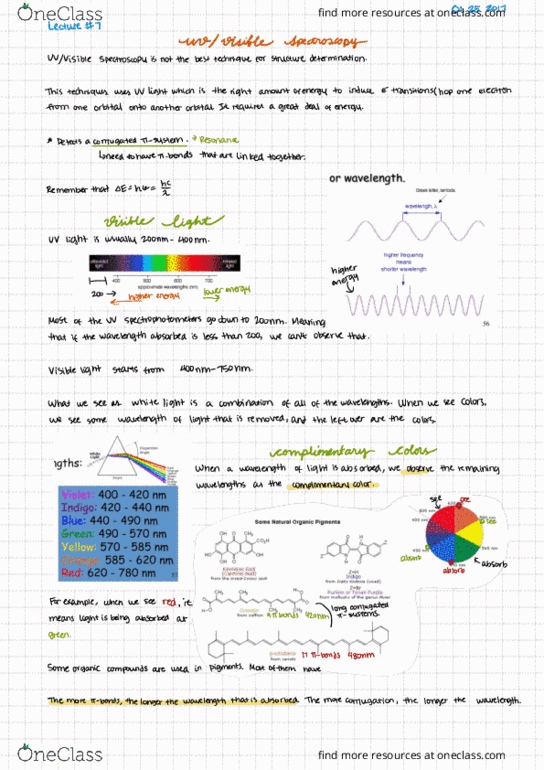 OneClass
find more resources at oneclass.com
Oct 25, 2017
Lecture #7
uv/visible spectroscopy
UV/Visible spectroscopy is not the best technique for structure determination.
This techniques uses UV light which is the right amount of energy to induce e⁻ transitions (hop one electron
from one orbital onto another orbital. It requires a great deal of energy.
* Detects a conjugated π-system. → Resonance
need to have π-bonds that are linked together.
Remember that ΔE = hν = hc/λ
or wavelength.
Greek letter, lambda
wavelength, λ
higher frequency
means
shorter wavelength
higher
energy
56
visible light
UV light is usually 200nm - 400nm.
ultraviolet
light
infrared
light
400 500 600 700
approximate wavelengths (nm)
200
higher energy
lower energy
Most of the UV spectrophotometers go down to 200nm. Meaning
that if the wavelength absorbed is less than 200, we can't observe that.
Visible light starts from 400nm-750nm.
What we see as white light is a combination of all of the wavelengths. When we see colors,
we see some wavelength of light that is removed, and the left over are the colors.
ngths:
White
Light
Violet: 400 - 420 nm
Indigo: 420 - 440 nm
Blue: 440 - 490 nm
Green: 490 - 570 nm
Yellow: 570 - 585 nm
Orange: 585 - 620 nm
Red: 620 - 780 nm
57
complimentary colors
When a wavelength of light is absorbed, we observe the remaining
wavelengths as the complimentary color.
see
see
see
absorb
absorb
absorb
Some Natural Organic Pigments
CO₂H
OH
Indigo
Crocetin
from saffron
9 π bonds 420nm
long conjugated
π-systems
β-carotene
from carrots
11 π-bonds 480nm
For example, when we see red, it
means light is being absorbed at
green.
Some organic compounds are used in pigments. Most of them have
The more π-bonds, the longer the wavelength that is absorbed. The more conjugation, the longer the wavelength.
OneClass
find more resources at oneclass.com